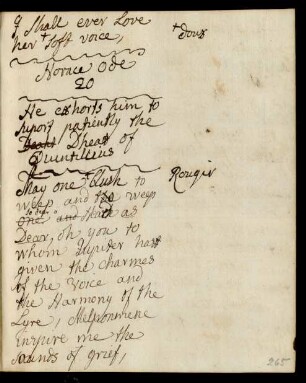 I Shall ever Love
her + soft voice,
+ doux
Horace Ode
20
He exhorts him to
suport patiently the
Dheat of
Quintilius
May one + blush to
Rougir
weep and to weep
as
Dear, oh you to
whom Jupiter has
given the charmes
of the Voice and
the Harmony of the
Lyre, Melpomene
inspire me the
sounds of grief,
265